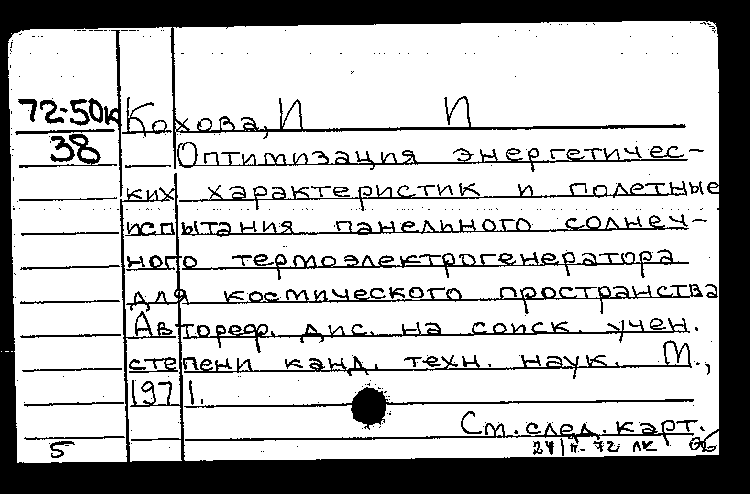 72-50к
38
Кохова, И И
Оптимизация энергетичес-
ких характеристик и полетные
испытания панельного солнеч-
ного термоэлектрогенератора
для космического пространства
Автореф. дис. на соиск. учен.
степени канд. техн. наук. М.,
1971.
См. след. карт.
5